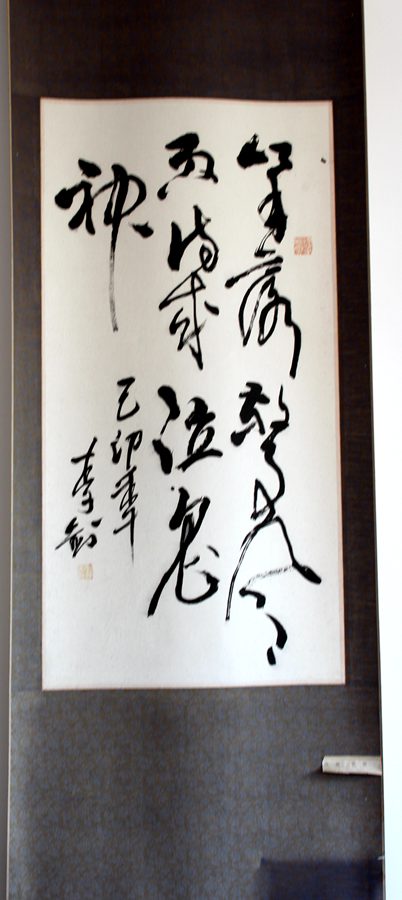 筆落驚風
雨詩成泣鬼
神
己卯年
李